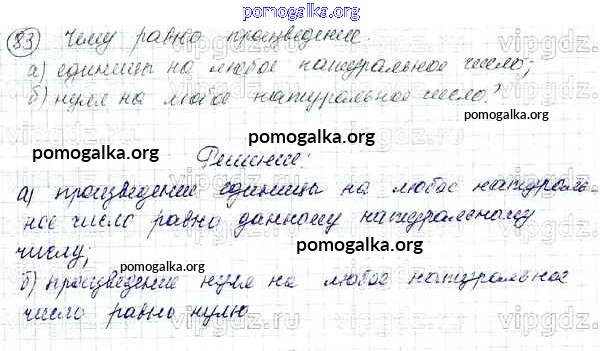 pomogalka.org
83) Чему равно произведение:
а) единицы на любое натуральное число;
б) нуля на любое натуральное число?
pomogalka.org pomogalka.org
Решение:
а) произведение единицы на любое натураль-
ное число равно данному натуральному
pomogalka.org
числу;
pomogalka.org
б) произведение нуля на любое натуральное
число равно нулю
pomogalka.org
vipgdz.ru